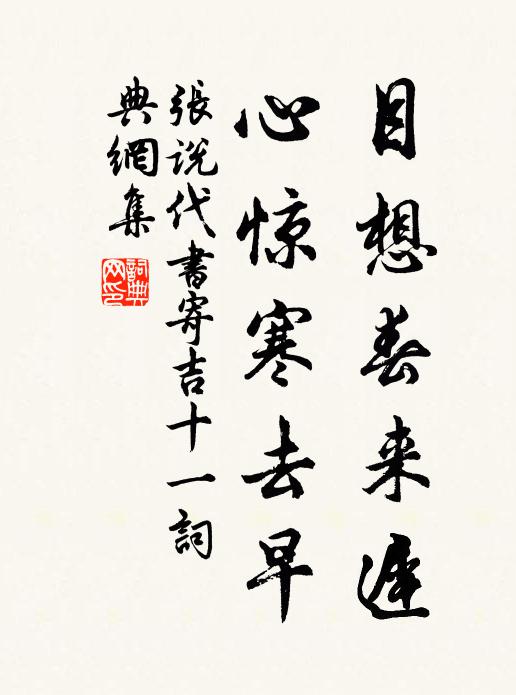 目想春来遲
心惊寒去早
張説代書寄吉十一詞
典網集
詞典
网印